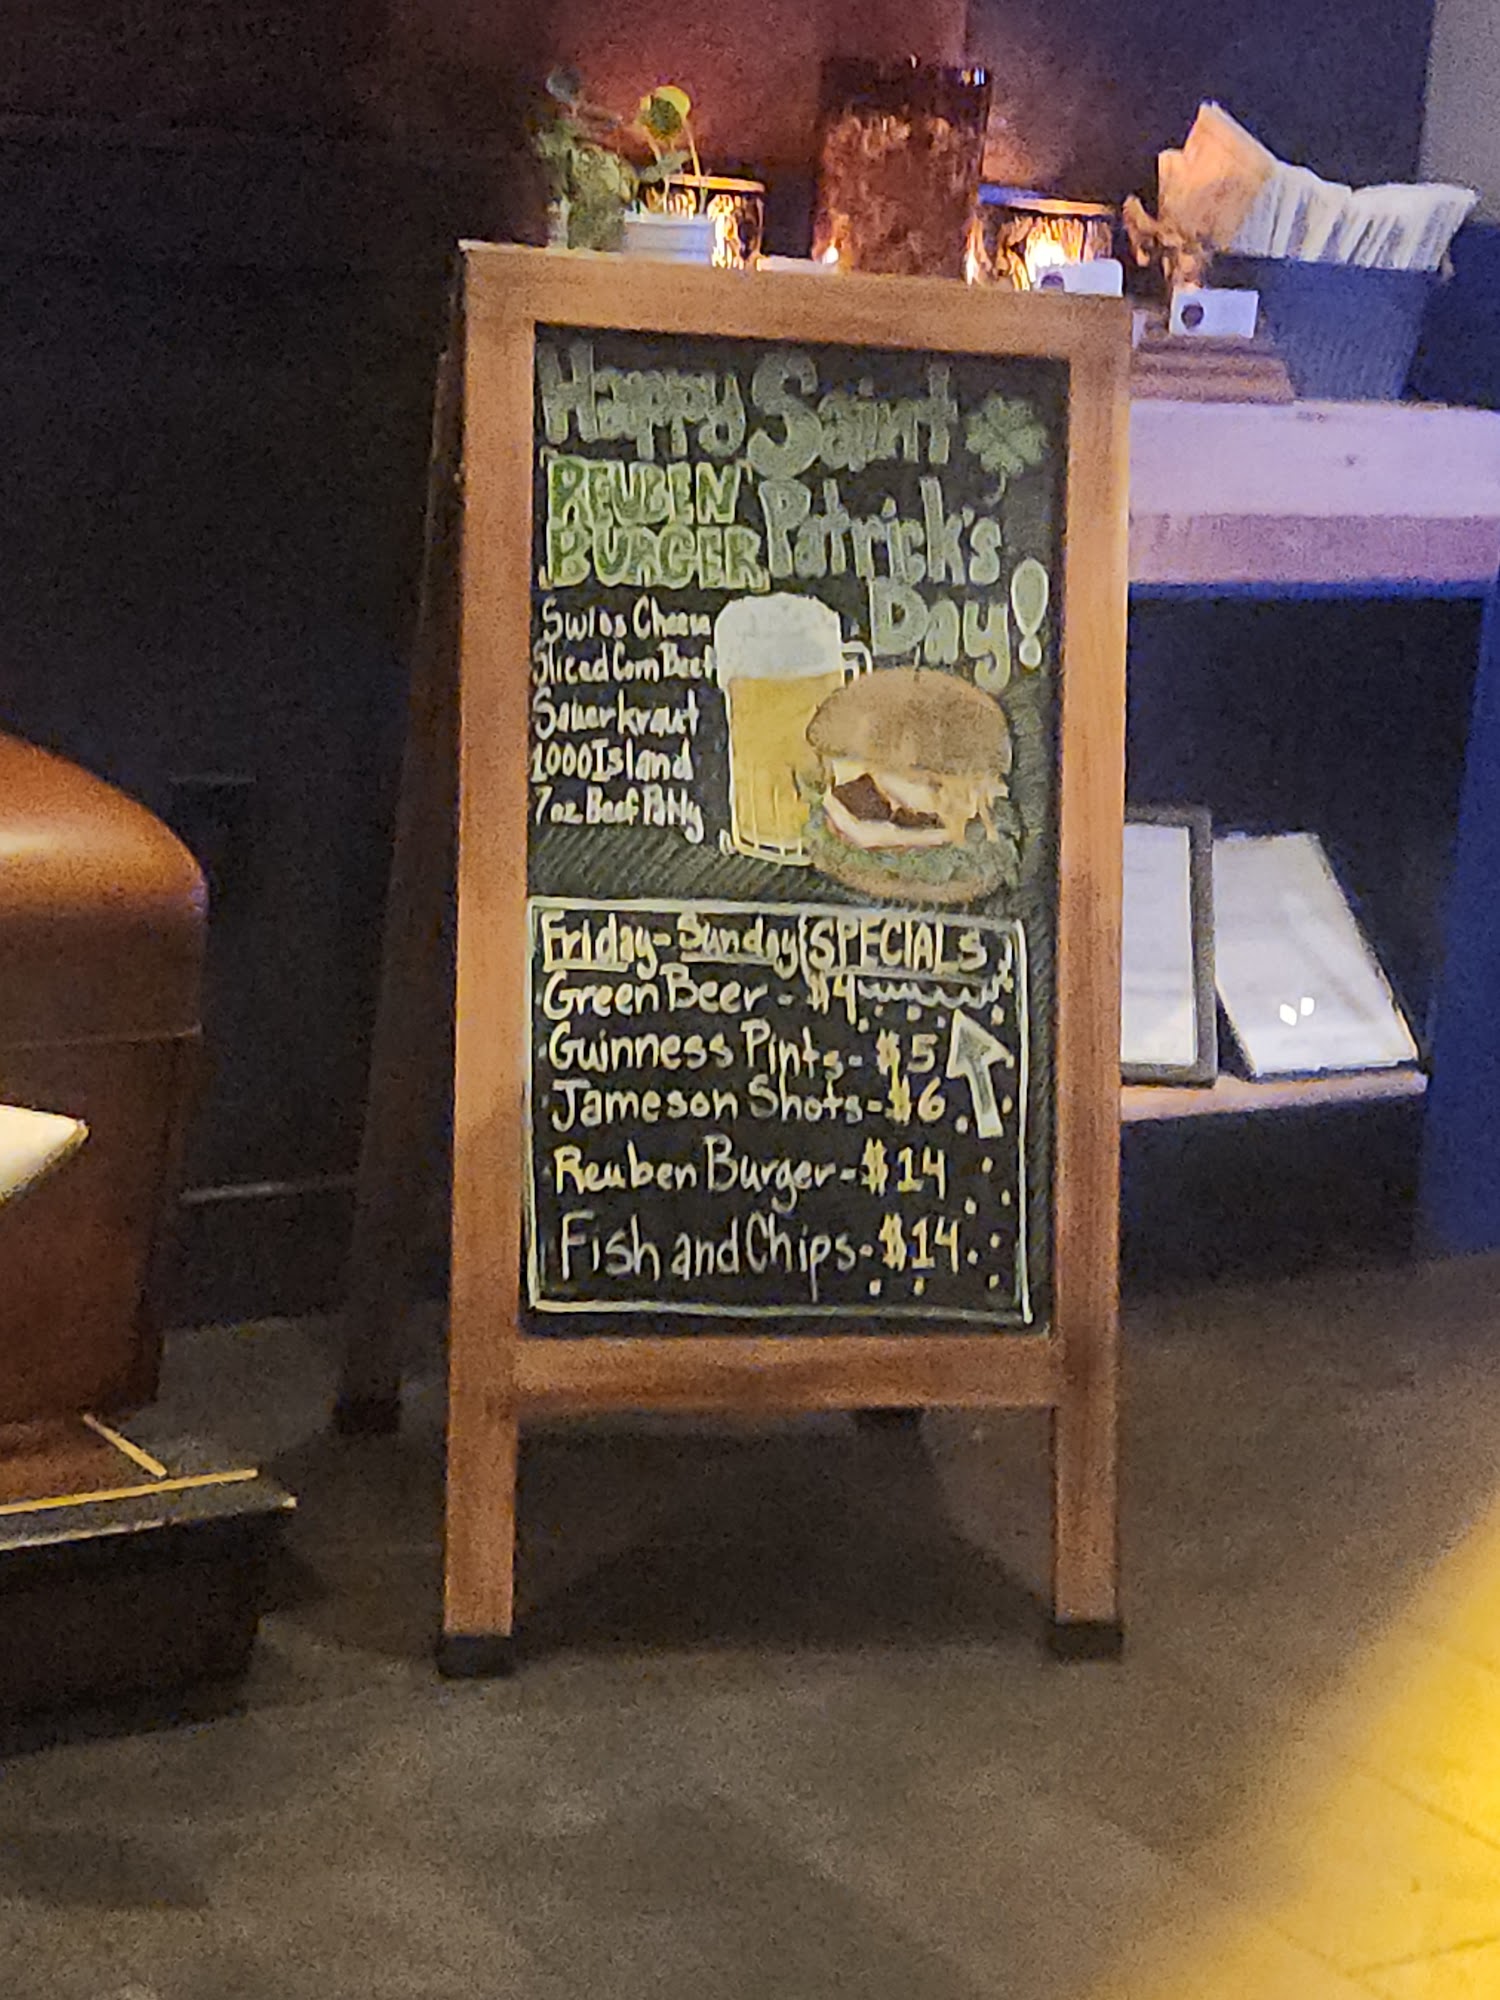 Happy Saint
Patrick's
Day!
REUBEN
BURGER
Swiss Cheese
Sliced Corn Beef
Sauerkraut
1000 Island
7oz Beef Patty
Friday - Sunday SPECIALS
Green Beer - $4
Guinness Pints - $5
Jameson Shots - $6
Reuben Burger - $14
Fish and Chips - $14